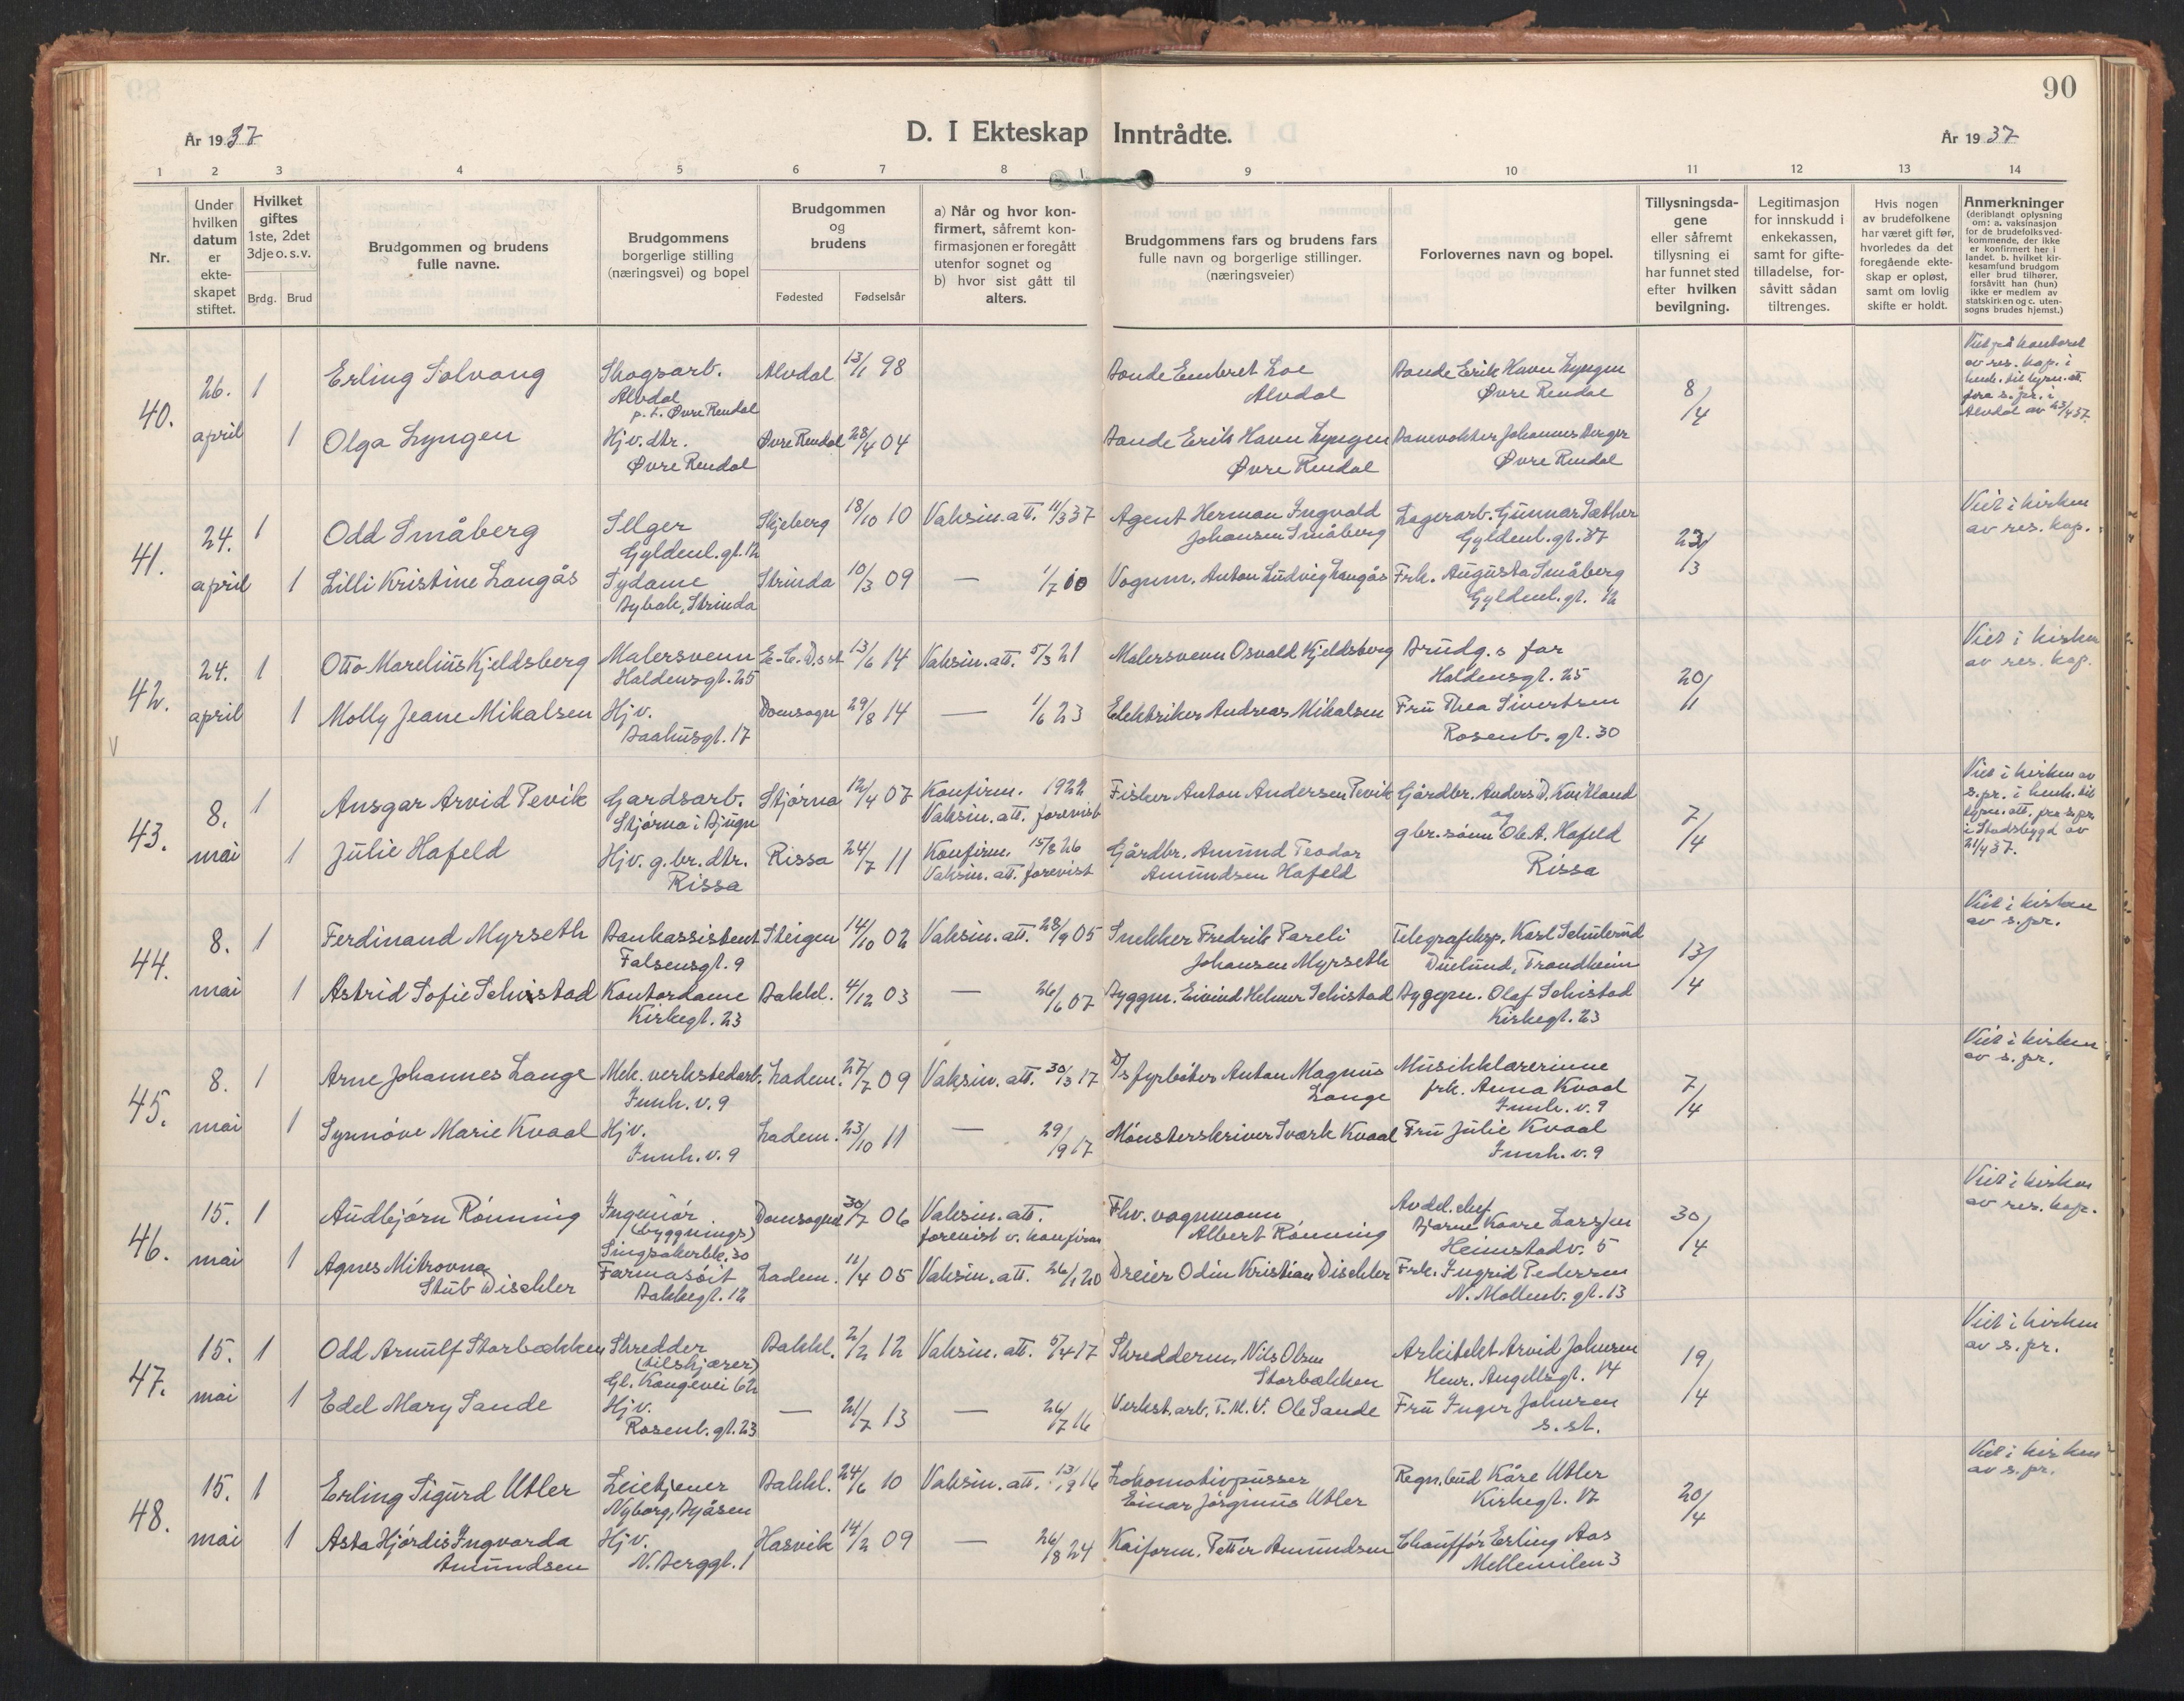 90
År 1937
D. I Ekteskap Inntrådte.
År 1937
1 2 3 4 5 6 7 8 9 10 11 12 13 14
Nr.
Under hvilken datum er ekteskapet stiftet.
Hvilket giftes 1ste, 2det 3dje o.s.v.
Brdg. Brud
Brudgommen og brudens fulle navne.
Brudgommens borgerlige stilling (næringsvei) og bopel
Brudgommen og brudens
Fødested
Fødselsår
a) Når og hvor konfirmert, såfremt konfirmasjonen er foregått utenfor sognet og
b) hvor sist gått til alters.
Brudgommens fars og brudens fars fulle navn og borgerlige stillinger. (næringsveier)
Forlovernes navn og bopel.
Tillysningsdagene eller såfremt tillysning ei har funnet sted efter hvilken bevilgning.
Legitimasjon for innskudd i enkekassen, samt for giftetilladelse, forsåvitt sådan tiltrenges.
Hvis nogen av brudefolkene har været gift før, hvorledes da det foregående ekteskap er opløst, samt om lovlig skifte er holdt.
Anmerkninger
(deriblandt oplysning om: a. vaksinasjon for de brudefolks vedkommende, der ikke er konfirmert her i landet. b. hvilket kirkesamfund brudgom eller brud tilhører, forsåvitt han (hun) ikke er medlem av statskirken og c. utensogns brudes hjemst.)
40.
26. april
1
Erling Solvang
Skogsarb.
Alvdal
p.t. Øvre Rendal
Alvdal 13/1 98
Bonde Embret Loe
Alvdal
Bonde Erik Havn Lyngen
Øvre Rendal
8/4
Viet på kontoret
av res. kap. i
henh. til lysn. att.
fra s.pr. i
Alvdal av 23/4 37.
1
Olga Lyngen
Hjv. dtr.
Øvre Rendal
Øvre Rendal 28/4 04
Bonde Erik Havn Lyngen
Øvre Rendal
Banevokter Johannes Berger
Øvre Rendal
41.
24. april
1
Odd Småberg
Selger
Gyldenl. gt. 12
Skjeberg 18/10 10
Vaksin. att. 11/3 37
Agent Herman Ingvald
Johansen Småberg
Lagerarb. Gunnar Sæther
Gyldenl. gt. 37
23/3
Viet i kirken
av res. kap.
1
Lilli Kristine Langås
Sydame
Bybak, Strinda
Strinda 10/3 09
— 1/7 10
Vognm. Anton Ludvig Langås
Frk. Augusta Småberg
Gyldenl. gt. 12
42.
24. april
1
Otto Marelius Kjeldsberg
Malersvenn
Haldensgt. 25
13/6 14
Vaksin. att. 5/3 21
Malersvenn Osvald Kjeldsberg
Brudg.s far
Haldensgt. 25
20/11
Viet i kirken
av res. kap.
1
Molly Jeane Mikalsen
Hjv.
Baahusgt. 17
Domsogn 29/8 14
— 1/6 23
Elektriker Andreas Mikalsen
Fru Thea Sivertsen
Rosenb. gt. 30
V
43.
8. mai
1
Ansgar Arvid Pevik
Gardsarb.
Stjørna i Bjugn
Stjørna 12/4 07
Konfirm. 1922
Vaksin. att. forevist
Fisker Anton Andersen Pevik
Gårdbr. Anders D. Kvitland
og
7/4
Viet i kirken av
s.pr. i henh. til
lysn. att. fra s.pr.
i Stadsbygd av
21/4 37.
1
Julie Hafeld
Hjv. g.br. dtr.
Rissa
Rissa 24/7 11
Konfirm. 15/8 26
Vaksin. att. forevist
Gårdbr. Amund Teodor
Amundsen Hafeld
gbr. sønn Ole A. Hafeld
Rissa
44.
8. mai
1
Ferdinand Myrseth
Bankassistent
Falsensgt. 9
Steigen 14/10 02
Vaksin. att. 28/9 05
Snekker Fredrik Pareli
Johansen Myrseth
Telegrafeksp. Karl Schulerud
Duelund, Trondheim
13/4
Viet i kirken
av s.pr.
1
Astrid Sofie Schistad
Kontordame
Kirkegt. 23
Bakkl. 4/12 03
— 26/6 07
Byggm. Eivind Helmer Schistad
Byggm. Olaf Schistad
Kirkegt. 23
45.
8. mai
1
Arne Johannes Lange
Mek. verkstedarb.
Innh. v. 9
Ladem. 27/7 09
Vaksin. att. 30/3 17
D/s fyrbøter Anton Magnus
Lange
Musikklærerinne
frk. Anna Kvaal
Innh. v. 9
7/4
Viet i kirken
av s.pr.
1
Synnøve Marie Kvaal
Hjv.
Innh. v. 9
Ladem. 23/10 11
— 29/9 17
Mønsterskriver Sverk Kvaal
Fru Julie Kvaal
Innh. v. 9
46.
15. mai
1
Audbjørn Rønning
Ingeniør
(byggnings)
Singsakerbk. 30
Domsogn 30/7 06
Vaksin. att.
forevist v. konfirm
Fhv. vognmann
Albert Rønning
Avdel. chef
Bjarne Kaare Larssen
Heimstadv. 5
30/4
Viet i kirken
av res. kap.
1
Agnes Mitrovna
Stub Dischler
Farmasøit
Bakkegt. 12
Ladem. 11/4 05
Vaksin. att. 26/1 20
Dreier Odin Kristian Dischler
Frk. Ingrid Pedersen
N. Møllenb. gt. 13
47.
15. mai
1
Odd Arnulf Storbækken
Skredder
(tilskjærer)
Gl. Kongevei 62
Bakkl. 2/2 12
Vaksin. att. 5/4 17
Skredderm. Nils Olsen
Storbækken
Arkitekt Arvid Johnsen
Henr. Angellsgt. 14
19/4
Viet i kirken
av s.pr.
1
Edel Mary Sande
Hjv.
Rosenb. gt. 23
— 21/7 13
— 26/7 16
Verkst. arb. T.M.V. Ole Sande
Fru Inger Johnsen
s. st.
48.
15. mai
1
Erling Sigurd Utler
Leietjener
Nyborg, Byåsen
Bakkl. 24/6 10
Vaksin. att. 13/9 16
Lokomotivpusser
Einar Jørginus Utler
Regn. bud Kåre Utler
Kirkegt. 17
20/4
Viet i kirken
av s.pr.
1
Asta Hjørdis Ingvarda
Amundsen
Hjv.
N. Berggt. 1
Hasvik 14/2 09
— 26/8 24
Kaiform. Petter Amundsen
Chauffør Erling Aas
Mellemilen 3